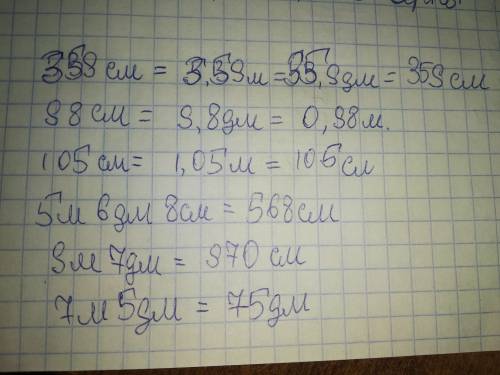 359 см = 3,59м = 35,9дм = 359 см
98 см = 9,8дм = 0,98м.
105 см = 1,05м = 105см
5м 6дм 8см = 568см
9м 7дм = 970 см
7м 5дм = 75дм